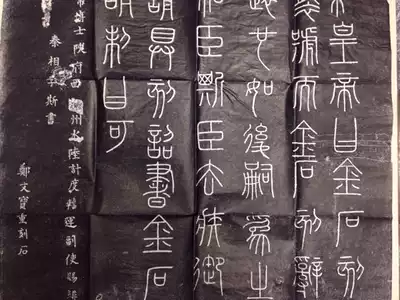 皇帝曰金石刻
襲號而金石刻辭
遠也如後嗣為之
相臣斯臣去疾御
請具刻詔書金石
制曰可
博士陝府西 州水陸計度轉運副使賜緋
秦相李斯書
鄭文寶重刻石